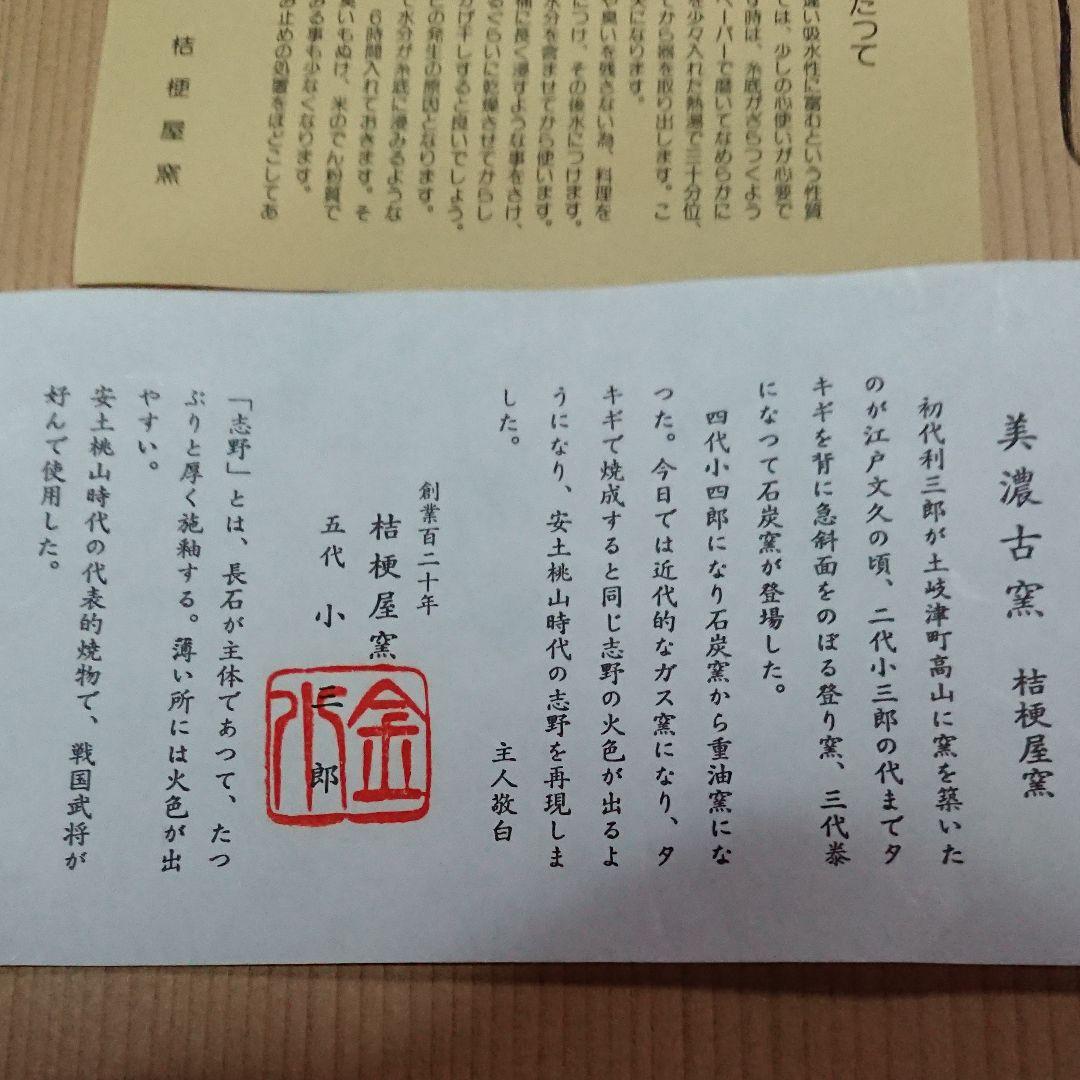 たつて
違い吸水性に富むという性質
ては、少しの心使いが心要で
す時は、糸底がざらつくよう
ペーパーで磨いてなめらかに
を少々入れた熱湯で三十分位、
てから器を取り出します。こ
夫になります。
や臭いを残さない為、料理を
につけ、その後水につけます。
水分を含ませてから使います。
桶に長く浸すような事をさけ、
るぐらいに乾燥させてからし
かげ干しすると良いでしょう。
ビの発生の原因となります。
て水分が糸底に浸みるような
6時間入れておきます。そ
臭いもぬけ、米のでん粉質で
みる事も少なくなります。
み止めの処置をほどこしてあ
桔梗屋窯
美濃古窯　桔梗屋窯
初代利三郎が土岐津町高山に窯を築いた
のが江戸文久の頃、二代小三郎の代まで夕
キギを背に急斜面をのぼる登り窯、三代泰
になつて石炭窯が登場した。
四代小四郎になり石炭窯から重油窯にな
つた。今日では近代的なガス窯になり、タ
キギで焼成すると同じ志野の火色が出るよ
うになり、安土桃山時代の志野を再現しま
した。
主人敬白
創業百二十年
桔梗屋窯
五代小三郎
金
「志野」とは、長石が主体であつて、たつ
ぷりと厚く施釉する。薄い所には火色が出
やすい。
安土桃山時代の代表的焼物で、戦国武将が
好んで使用した。